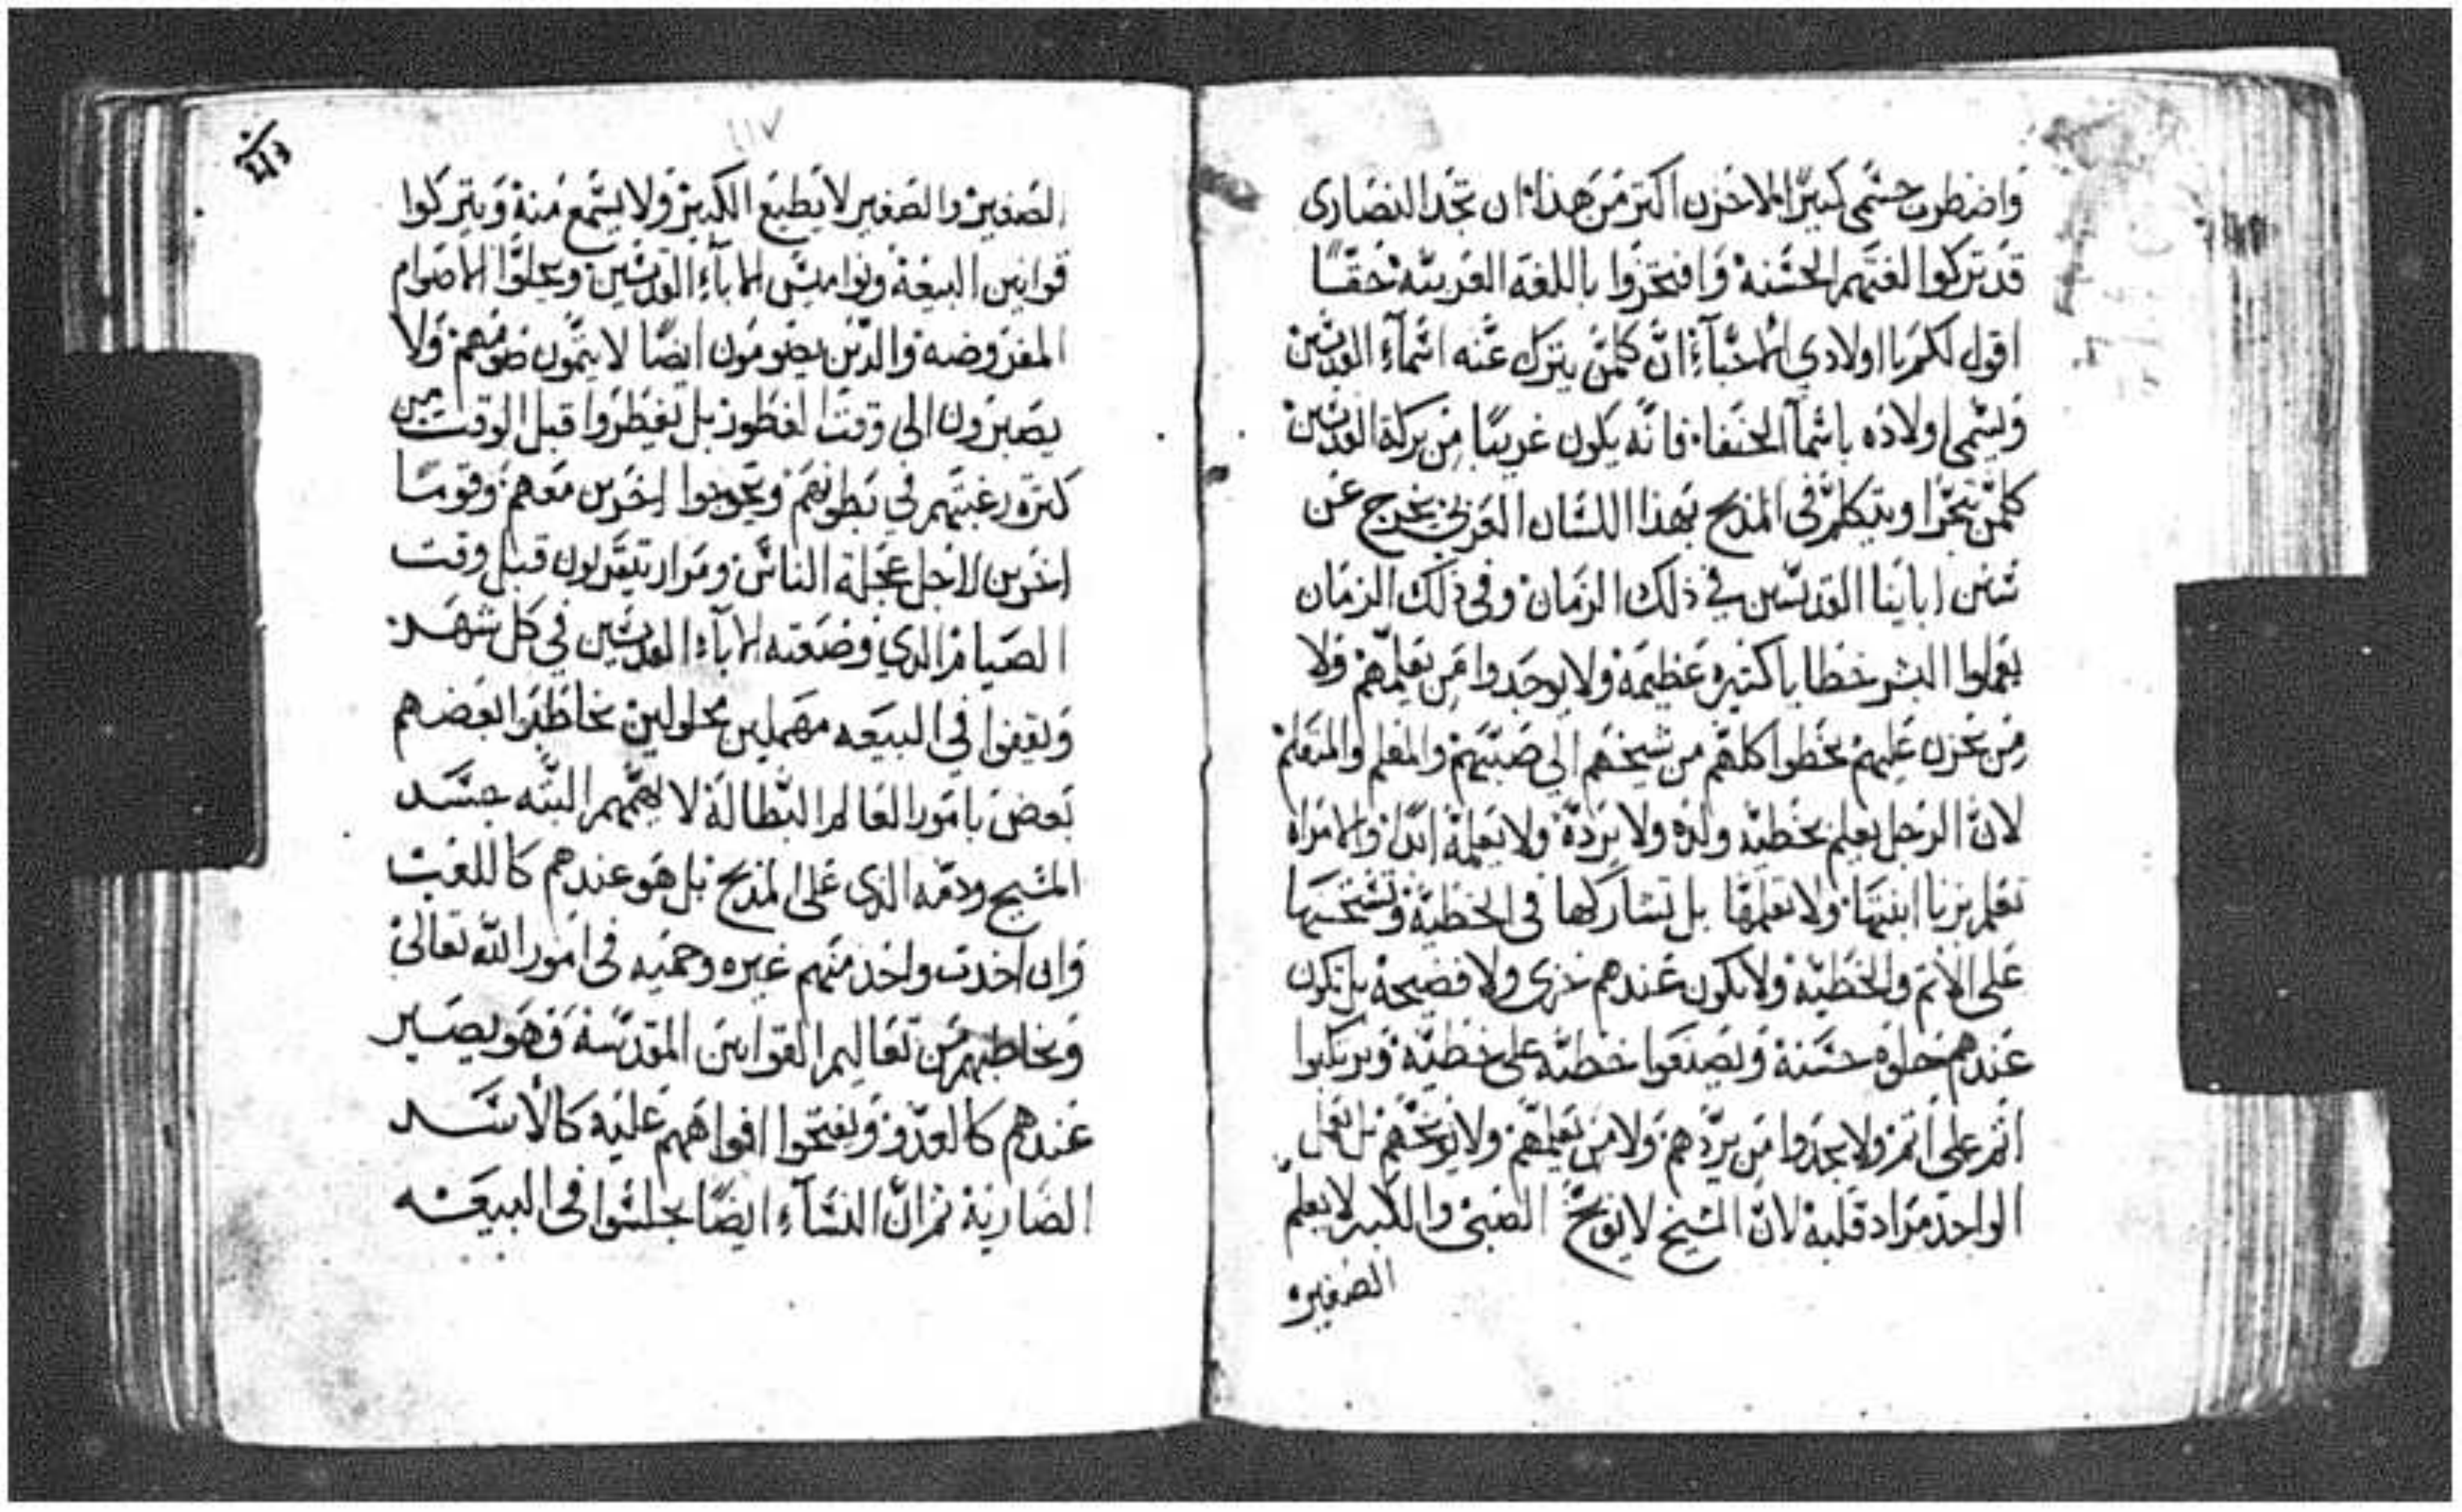 واضطرب جسمى كثيرًا الاحزن اكتر من هذا ان تجد النصارى
قد تركوا لغتهم الحسنة وافتخروا باللغه العربيه حقًا
اقول لكم يا اولادي الاحبآء ان كلمن يترك عنه اسمآء القديسين
ويسمى اولاده باسمآ الحنفا فانه يكون غريبًا من بركة القديسين
كلمن تجرا ويتكلم فى المذبح بهذا اللسان العربي يخرج عن
سنن اباينا القديسين في ذلك الزمان وفى ذلك الزمان
يعملوا البشر خطايا كتيره عظيمة ولا يوجدوا من يعلمهم ولا
من يحزن عليهم يخطوا كلهم من شيخهم الى صبيهم والمعلم والمتعلم
لان الرجل يعلم بخطية ولده ولا يرده ولا يعلمه ابدًا والامراه
تعلم بزنا ابنتها ولا تعلمها بل تشاركها فى الخطية وتشحبها
على الاتم والخطية ولا يكون عندهم خزى ولا فضيحة بل يكون
عندهم حلوه حسنة ويصنعوا خطيه على خطية ويرتكبوا
اتم على اتم ولا يجدوا من يردهم ولا من يعلمهم ولا يوبخهم بل يعمل
الواحد مراد قلبه لان الشيخ لا يوبخ الصبى والكبير لا يعلم
الصغير
١١٧
الصغير والصغير لا يطيع الكبير ولا يسمع منه ويتركوا
قوانين البيعة ونواميس الابآء القديسين ويحلوا الاصوام
المفروضه والذين يصومون ايضًا لا يتمون صومهم ولا
يصبرون الى وقت الفطور بل يفطروا قبل الوقت من
كتره رغبتهم في بطونهم ويعوجوا اخرين معهم وقومًا
اخرين لاجل عجلة الناس ومرار يتقربون قبل وقت
الصيام الذي وضعته الابآء القديسين في كل شهر
ويقفوا في البيعه مهملين محلولين يخاطبوا بعضهم
بعض بامور العالم البطالة لا يهمهم البته جسد
المسيح ودمه الذى على المذبح بل هو عندهم كاللعب
وان اخدت واحد منهم غيره وحميه فى امور الله تعالى
ويخاطبهم من تعاليم القوانين المقدسة فهو يصير
عندهم كالعدو ويفتحوا افواههم عليه كالاسد
الضارية ثم ان النسآء ايضًا يجلسوا فى البيعه